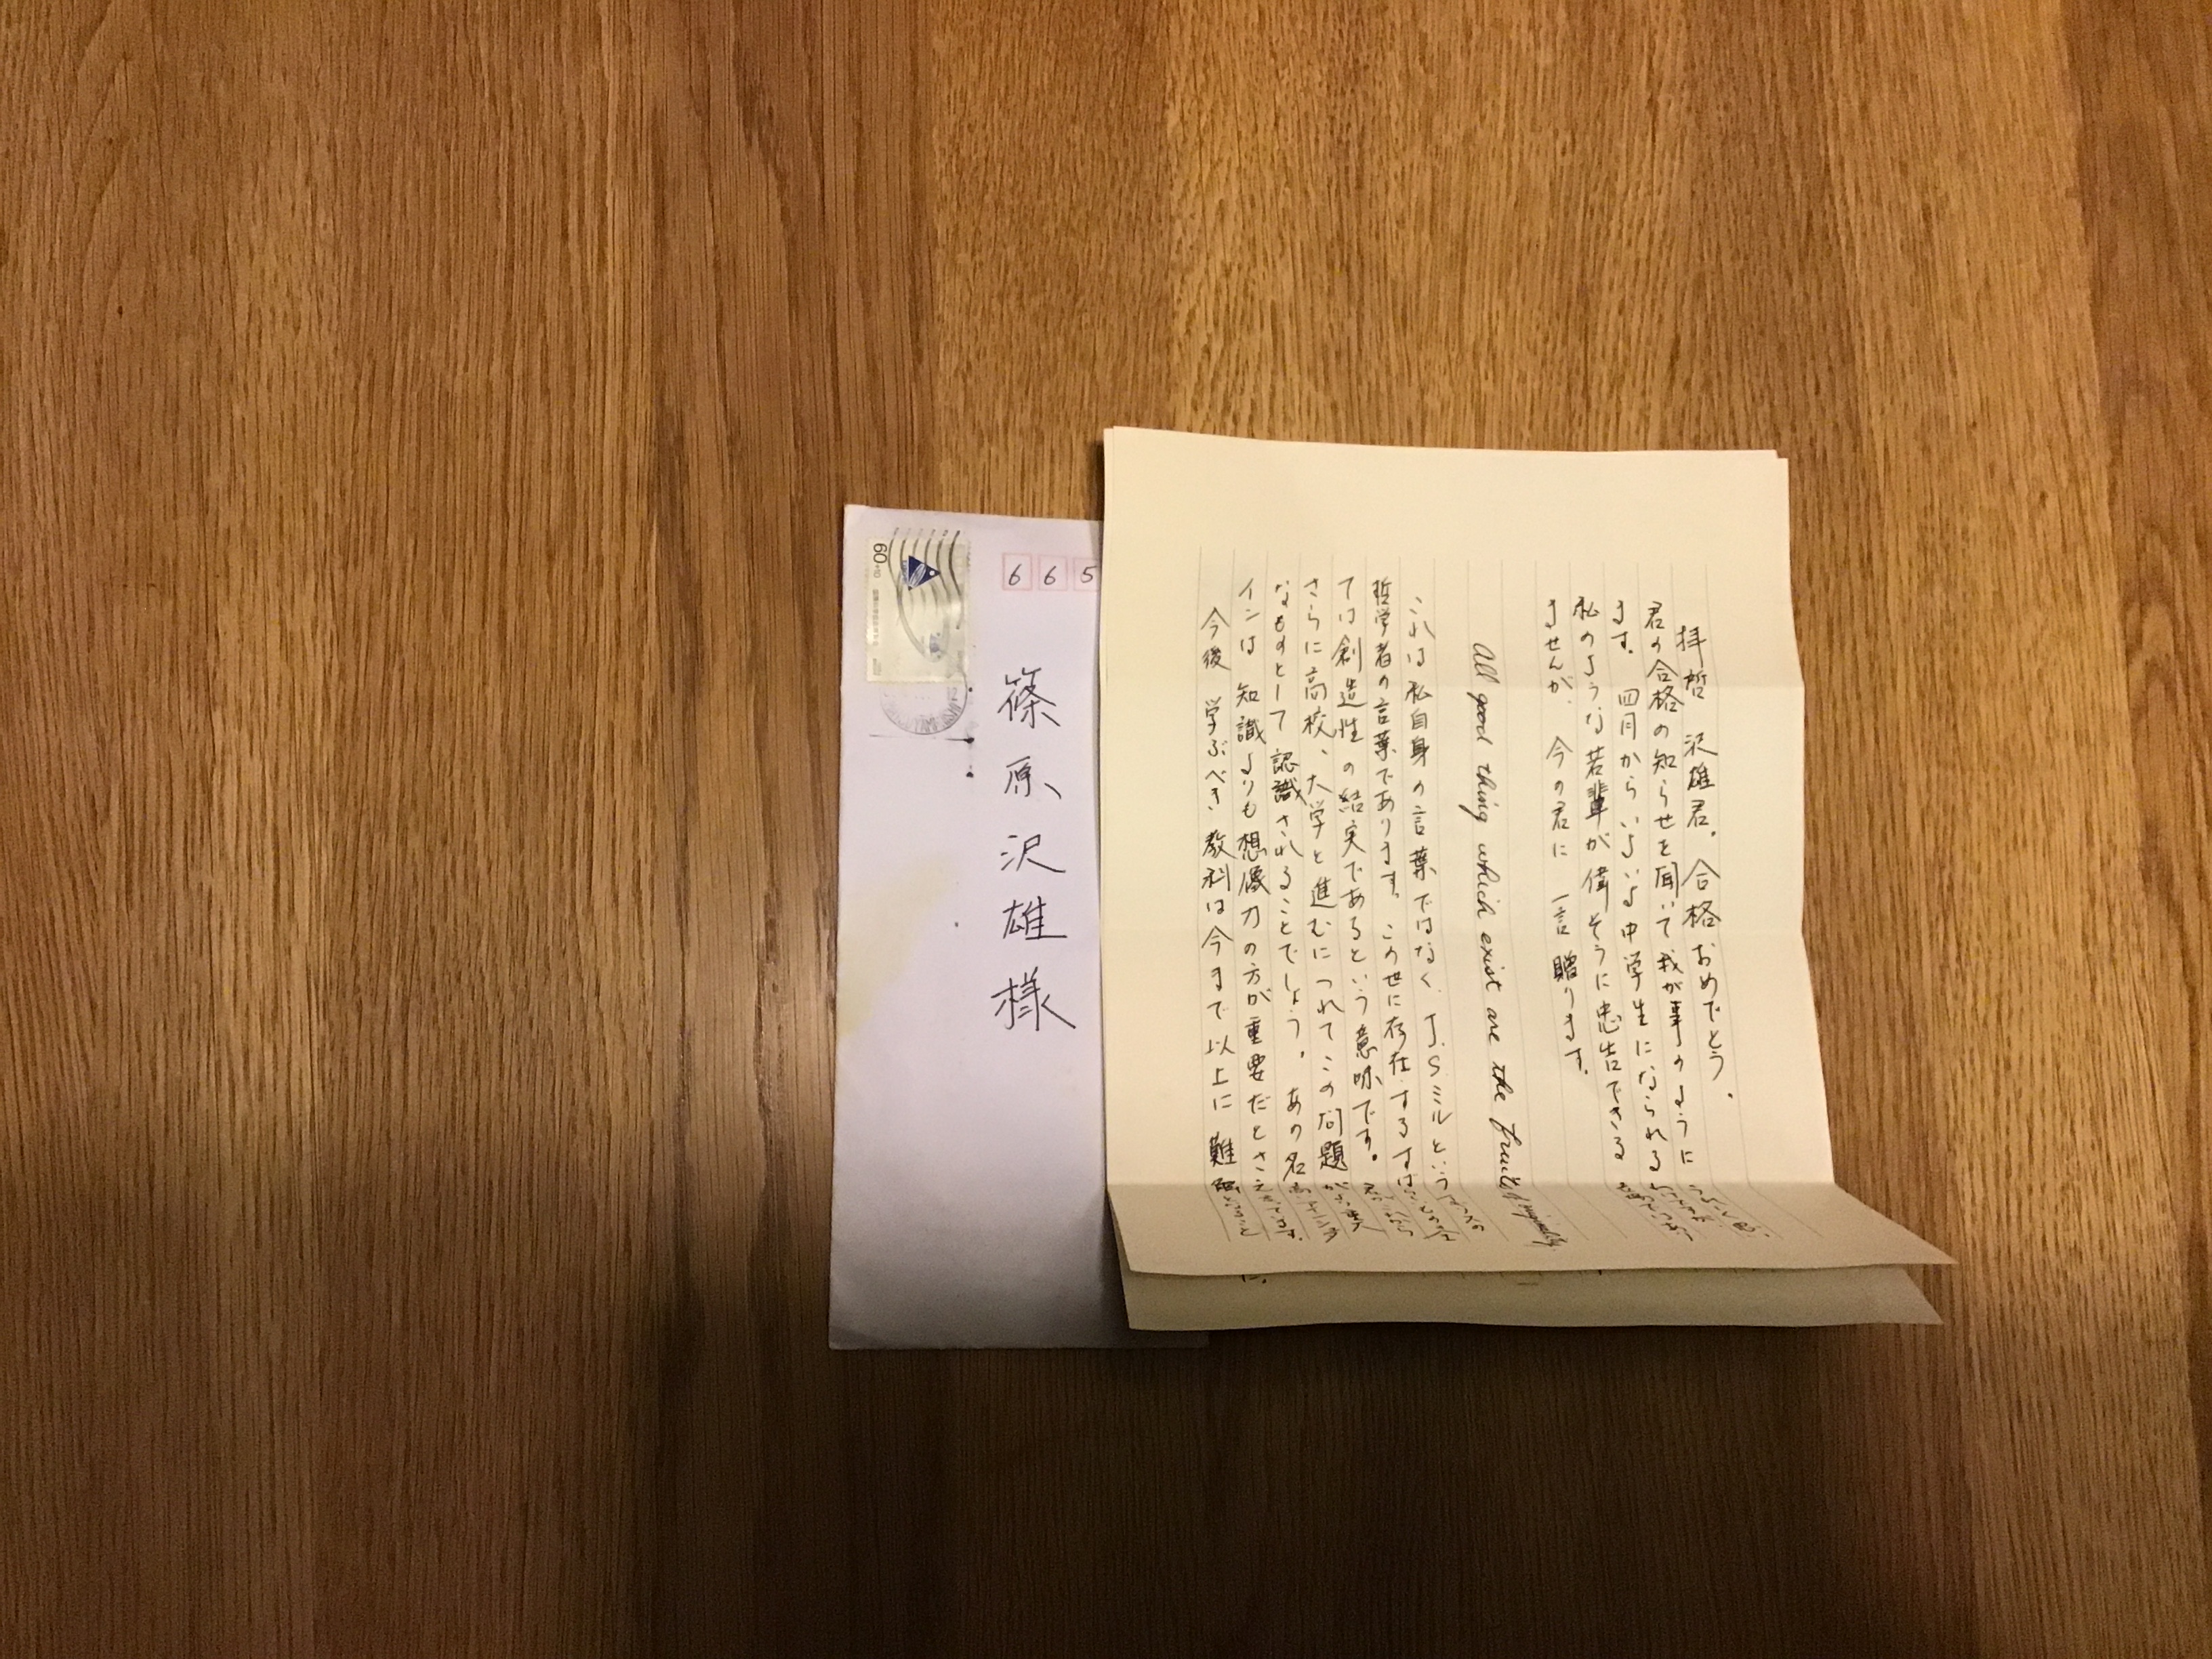 拝哲 沢雄君。合格おめでとう。
君の合格の知らせを聞いて我が事のように
ます。四月からいよいよ中学生になられる
私のような若輩が偉そうに忠告できる
ませんが、今の君に一言贈ります。
All good thing which exist are the fruits
これは私自身の言葉ではなく、J.Sミルという
哲学者の言葉であります。この世に存在するすべ
ては創造性の結実であるという意味です。
さらに高校、大学と進むにつれてこの問題が
なものとして認識されることでしょう。あの名
インは知識よりも想像力の方が重要だとさえ
今後学ぶべき教科は今まで以上に難
665
篠原沢雄様
60